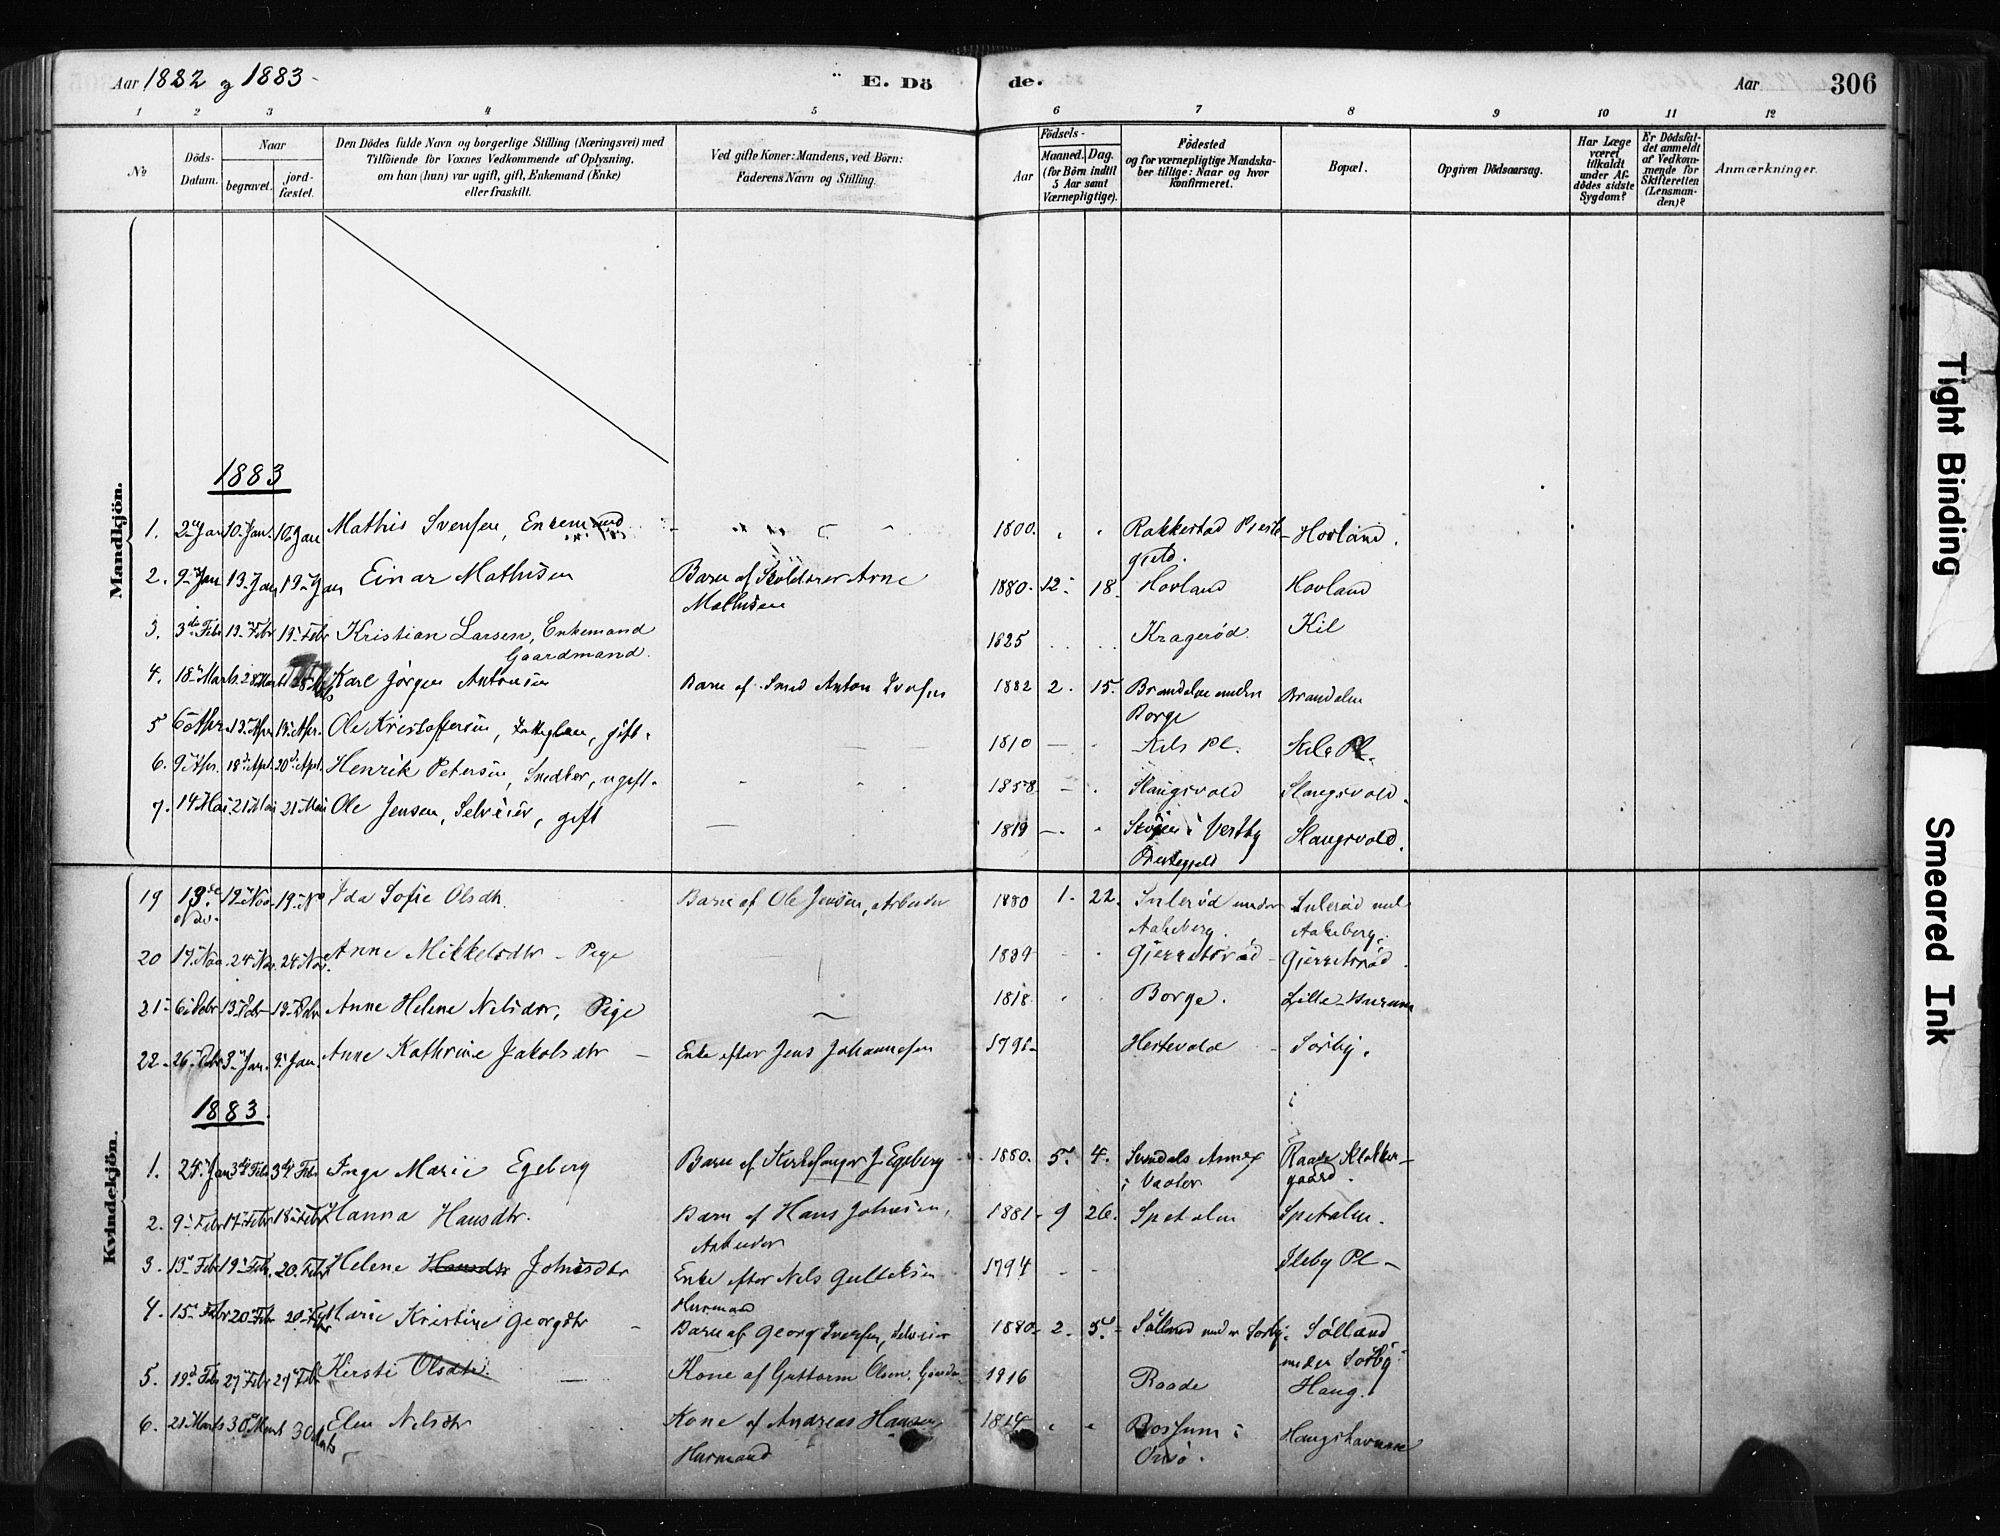 Aar 1882 og 1883 -
E. Dö
de.
Aar
306
1 2 3 4 5 6 7 8 9 10 11 12
No
Döds-
Datum.
Naar
begravet.
jord-
fæstet.
Den Dödes fulde Navn og borgerlige Stilling (Næringsvei) med
Tilföiende for Voxnes Vedkommende af Oplysning,
om han (hun) var ugift, gift, Enkemand (Enke)
eller fraskilt.
Ved gifte Koner: Mandens, ved Börn:
Faderens Navn og Stilling.
Födsels-
Aar
Maaned. Dag.
(for Börn indtil
5 Aar samt
Værnepligtige).
Födested
og for værnepligtige Mandska-
ber tillige: Naar og hvor
konfirmeret.
Bopæl.
Opgiven Dödsaarsag.
Har Læge
været
tilkaldt
under Af-
dödes sidste
Sygdom?
Er Dödsfal-
det anmeldt
af Vedkom-
mende for
Skifteretten
(Lensman-
den)?
Anmærkninger.
Mandkjön.
1883
1. 2 Jan 10 Jan. 10 Jan Mathis Svensen, Enkemand 1800. Rakkestad Præste- Hovland.
gjeld.
2. 9 Jan 13 Jan 19 Jan Einar Mathisen Barn af Arne 1880. 12. 18. Hovland Hovland
Mathisen
3. 3 Febr 19 Febr 19 Febr Kristian Larsen, Enkemand 1825 Kragerød. Kil
Gaardmand.
4. 18 Marts 28 Marts Karl Jörgen Antonsen Barn af Smed Anton Iversen 1882 2. 15. Brandelen under Brandelen
Borge
5 6 Apr. 13 Apr 13 Apr. Ole Kristoffersen, gift. 1810 Kils Pl. Kils Pl.
6. 9 Apr. 18 Apl. 20 Apl. Henrik Petersen, Snedker, ugift. 1858 Slangsvold Slangsvold.
7. 14 Mai 21 Mai 21 Mai Ole Jensen, Selveier, gift 1819 i Vestby Slangsvold.
Præstegjeld
Kvindekjön.
19 13 19 Nov 19 N Ida Sofie Olsdtr. Barn af Ole Jensen, Arbeider 1880 1. 22. Sulerød under Sulerød und
Aakeberg. Aakeberg.
20 17 Nov. 24 Nov. 24 Nov. Anne Mikkelsdtr - Pige Gjerretsrød Gjerretsrød.
21 6 Debr 13 Debr 13 Debr Anne Helene Nelsdtr, Pige 1818 Borge. Lille-Husum
22. 26 Debr 3 Jan. 3 Jan. Anne Kathrine Jakobsdtr Enke efter Jens Johannesen Hestevold Sorby.
1883.
1. 24 Jan 3 Febr 3 Febr Inga Marie Egeberg Barn af Kirkesanger J Egeberg 1880. 5. 4. Svindals Annex Raade Klokker-
i Vaaler gaard.
2. 9 Febr 17 Febr 18 Febr Hanna Hansdtr. Barn af Hans Johnsen, 1881 9 26. Spetalen Spetalen.
Arbeider
3. 13 Febr 19 Feb. 20 Febr Helene Hansdtr Johnsdtr Enke efter Nels Gulleksen 1794 Ileby Pl -
Husmand
4. 15 Febr 20 Febr 20 Febr Marie Kristine Georgdtr Barn af Georg Iversen, Selveier 1880 2. 5. Sölland under Sorby. Sölland
under Sorby
5. 19 Febr 27 Febr 27 Febr Kirsti Olsdtr. Kone af Guttorm Olsen, Raade Haug.
6. 21 Marts 30 Marts 30 Marts Elen Nelsdtr Kone af Andreas Hansen 1814 Rossum i Haugshavnen
Husmand Onsö.
Tight Binding
Smeared Ink